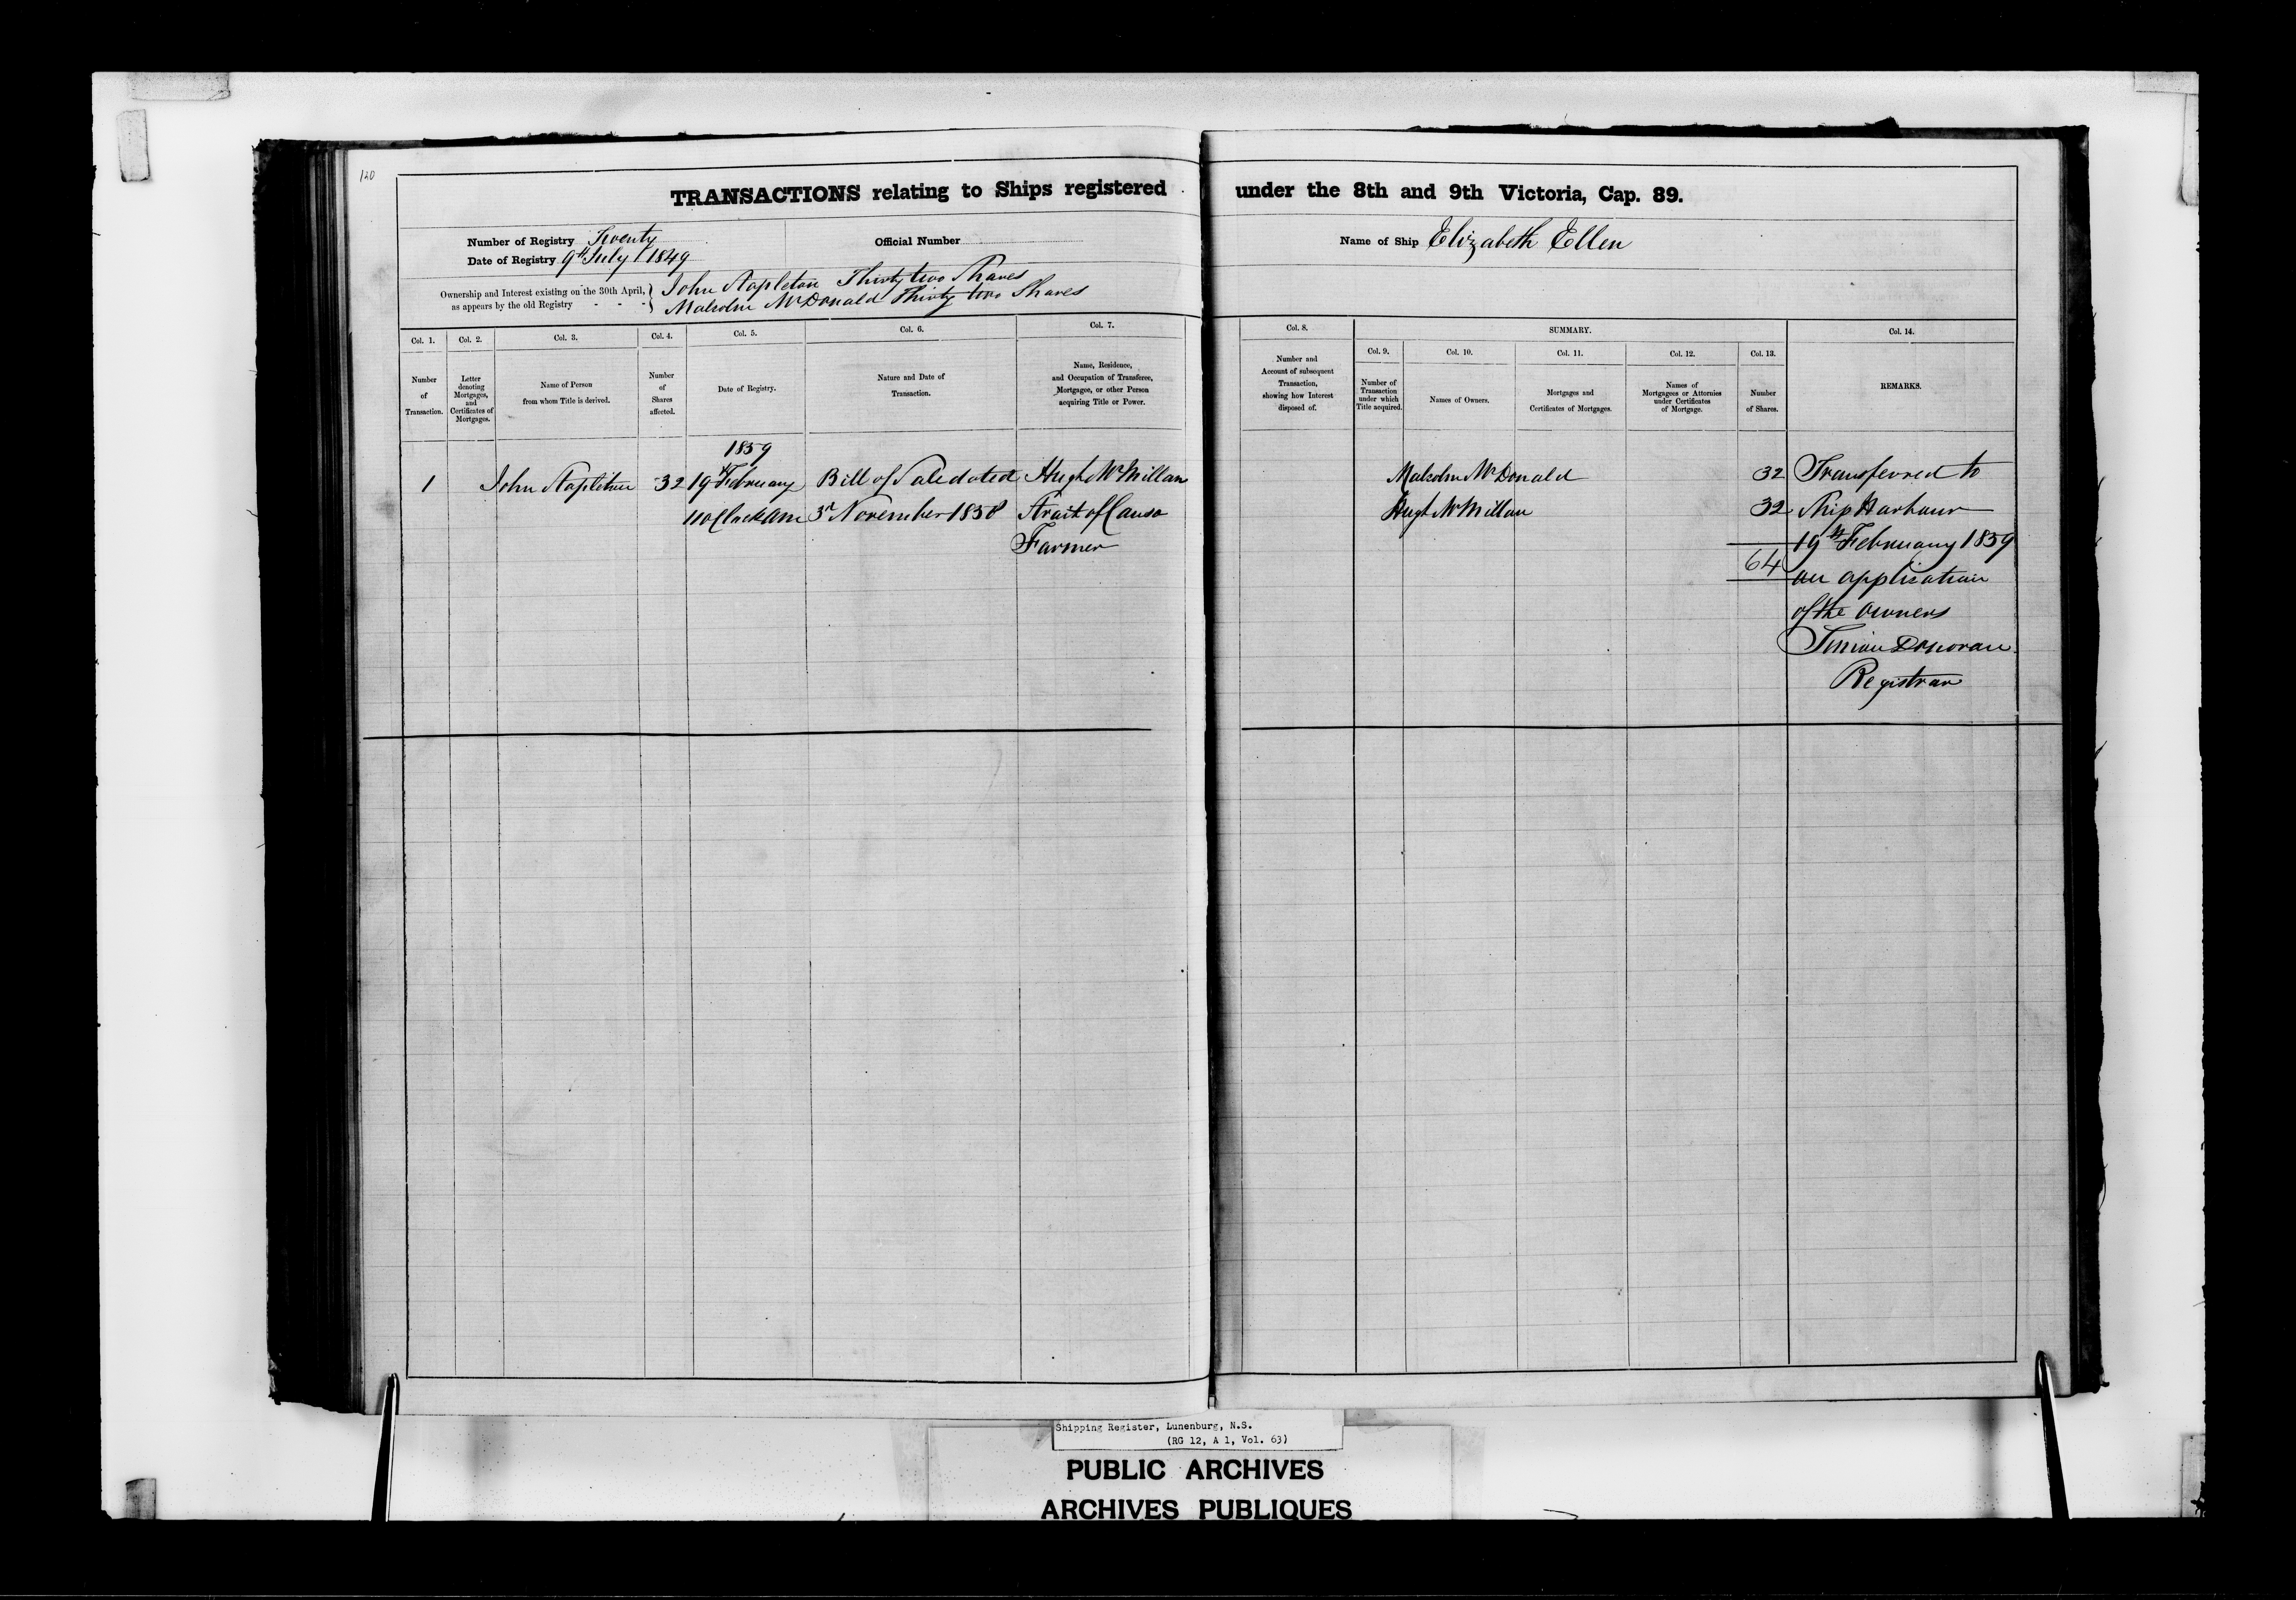 120
TRANSACTIONS relating to Ships registered under the 8th and 9th Victoria, Cap. 89.
Number of Registry Twenty
Official Number
Name of Ship Elizabeth Ellen
Date of Registry 9th July 1849
Ownership and Interest existing on the 30th April, as appears by the old Registry - - -
John Stapleton Thirty two Shares
Malcolm McDonald Thirty two Shares
SUMMARY.
Col. 1. Number of Transaction.
Col. 2. Letter denoting Mortgages, and Certificates of Mortgages.
Col. 3. Name of Person from whom Title is derived.
Col. 4. Number of Shares affected.
Col. 5. Date of Registry.
Col. 6. Nature and Date of Transaction.
Col. 7. Name, Residence, and Occupation of Transferee, Mortgagee, or other Person acquiring Title or Power.
Col. 8. Number and Account of subsequent Transaction, showing how Interest disposed of.
Col. 9. Number of Transaction under which Title acquired.
Col. 10. Names of Owners.
Col. 11. Mortgages and Certificates of Mortgages.
Col. 12. Names of Mortgagees or Attornies under Certificates of Mortgage.
Col. 13. Number of Shares.
Col. 14. REMARKS.
1859
1 John Stapleton 32 19th February Bill of Sale dated Hugh McMillan
11 oClock Am 3rd November 1858 Strait of Canso
Farmer
Malcolm McDonald 32
Hugh McMillan 32
64
Transferred to
Ship Harbour
19th February 1859
on application
of the owners
Donovan
Registrar
Shipping Register, Lunenburg, N.S.
(RG 12, A 1, Vol. 63)
PUBLIC ARCHIVES
ARCHIVES PUBLIQUES